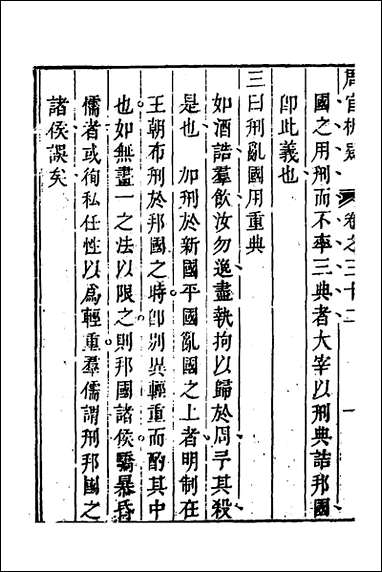 周官析疑 卷之三十二 一
國之用刑而不率三典者大宰以刑典詰邦國
卽此義也
三曰刑亂國用重典
如酒誥羣飲汝勿逸盡執拘以歸於周予其殺
是也 加刑於新國平國亂國之上者明制在
王朝布刑於邦國之時卽別異輕重而酌其中
也如無畫一之法以限之則邦國諸侯驕暴昏
懦者或徇私任性以爲輕重羣儒謂刑邦國之
諸侯誤矣